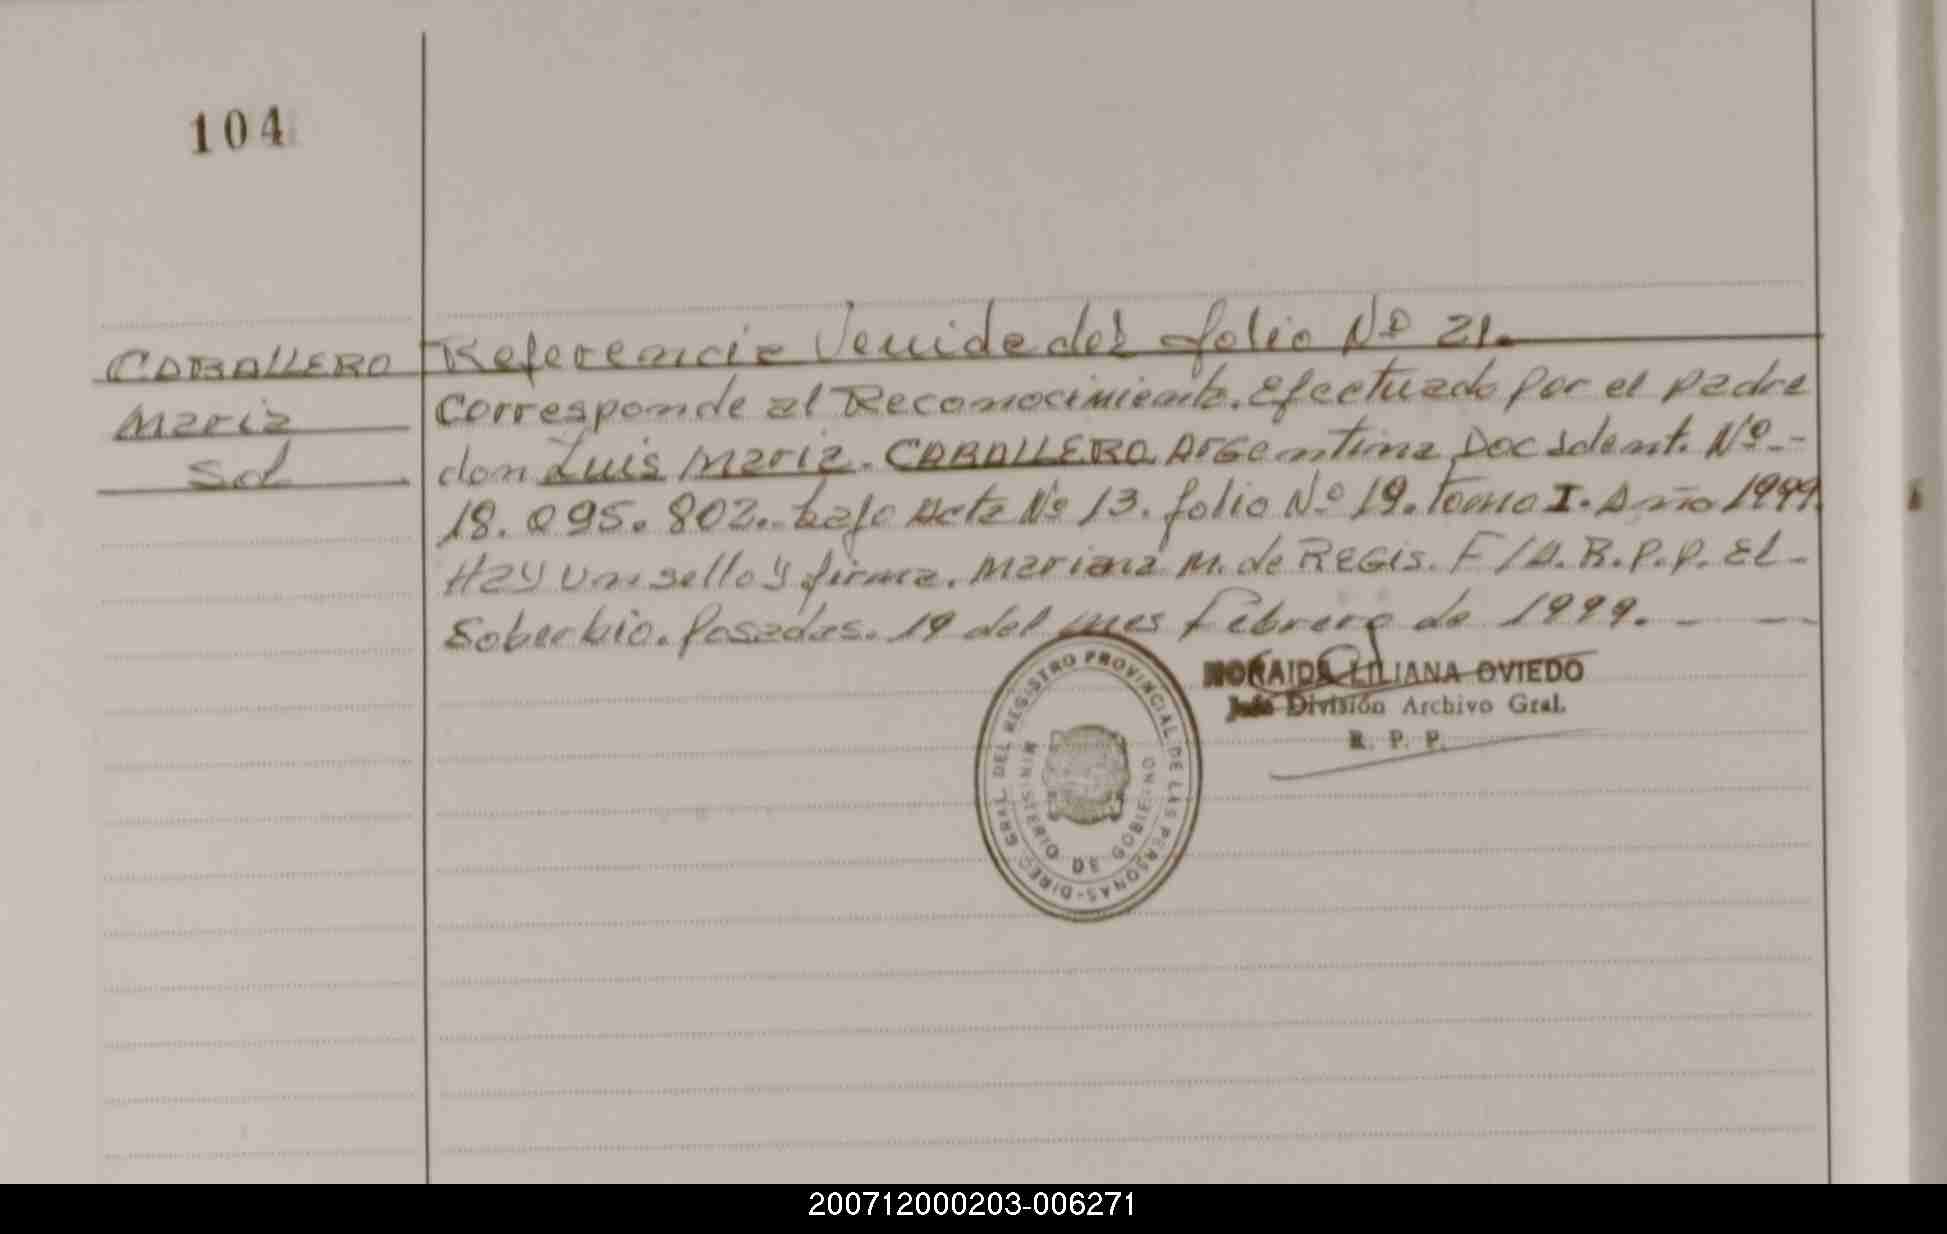 104
CABALLERO
Maria
Sol
Referencia Venida del folio Nº 21.
Corresponde al Reconocimiento. Efectuado por el padre
don Luis Maria. CABALLERO Argentina Doc Ident. Nº--
18.095.802.- bajo Acta Nº 13. folio Nº 19. Tomo I. Año 1999.
Hay un sello y firma. Mariana M. de REGIS. F/A. R.P.P. El-
Soberbio. Posadas. 19 del mes Febrero de 1999. - --
DIREC. GRAL. DEL REGISTRO PROVINCIAL DE LAS PERSONAS-
MINISTERIO DE GOBIERNO
NORAIDA LILIANA OVIEDO
Jefe División Archivo Gral.
R. P. P.
200712000203-006271